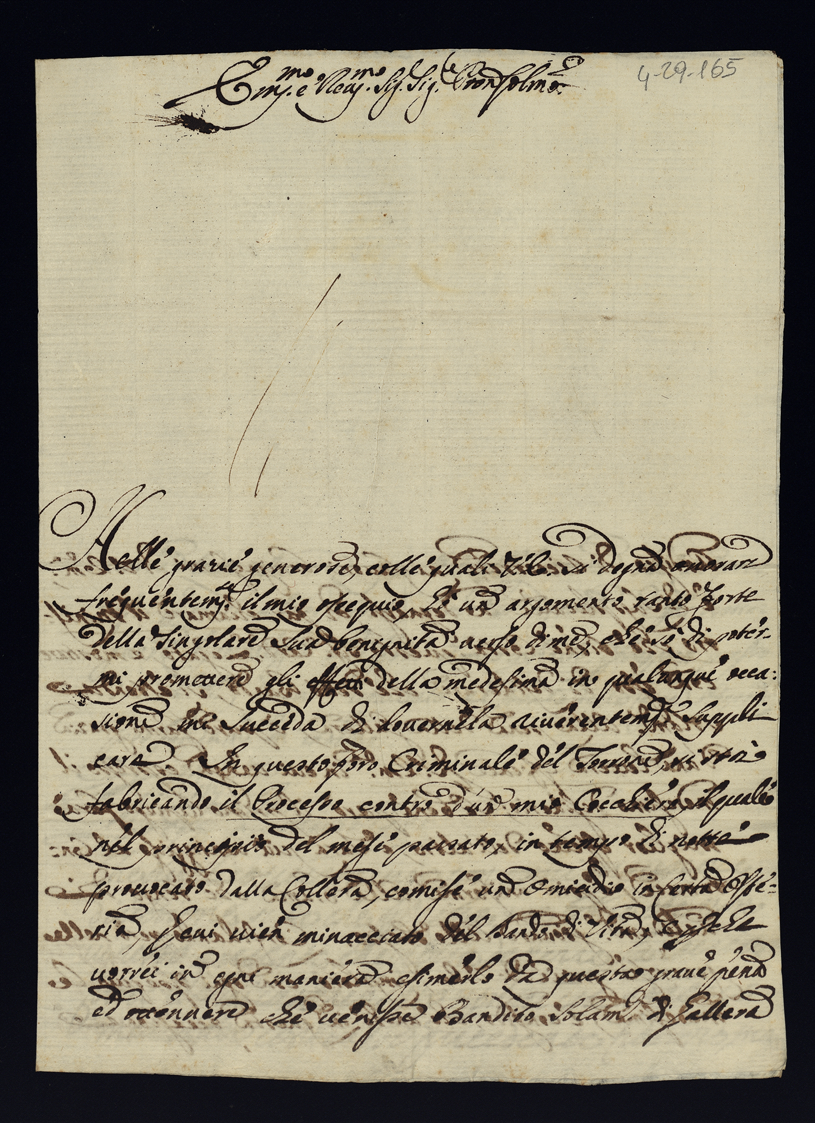 4-29-165
Em.mo e Rev.mo Sig. Sig.re Pron Colmo
Nelle grazie generose, colle quali V. E. si degna onorare
frequentem.te il mio ossequio è un argomento tanto forte
della singolare sua benignità verso di me, che sò di poter-
mi promettere gli effetti della medesima in qualunque occa-
sione me succeda di doverнela riverentem.te suppli-
care. In questo foro Criminale del Torrone si stà
fabricando il Processo contro d'un mio Cocchiere, il quale
nel principio del mese passato, in tempo di notte
provocato dalla Collera, comise un Omicidio in certa Oste-
ria, per cui vien minacciato del Bando di Vita, e perche
vorrei in ogni maniera esimerlo da questa grave pena
ed ottenere che venisse Bandito solam.te di Gallera